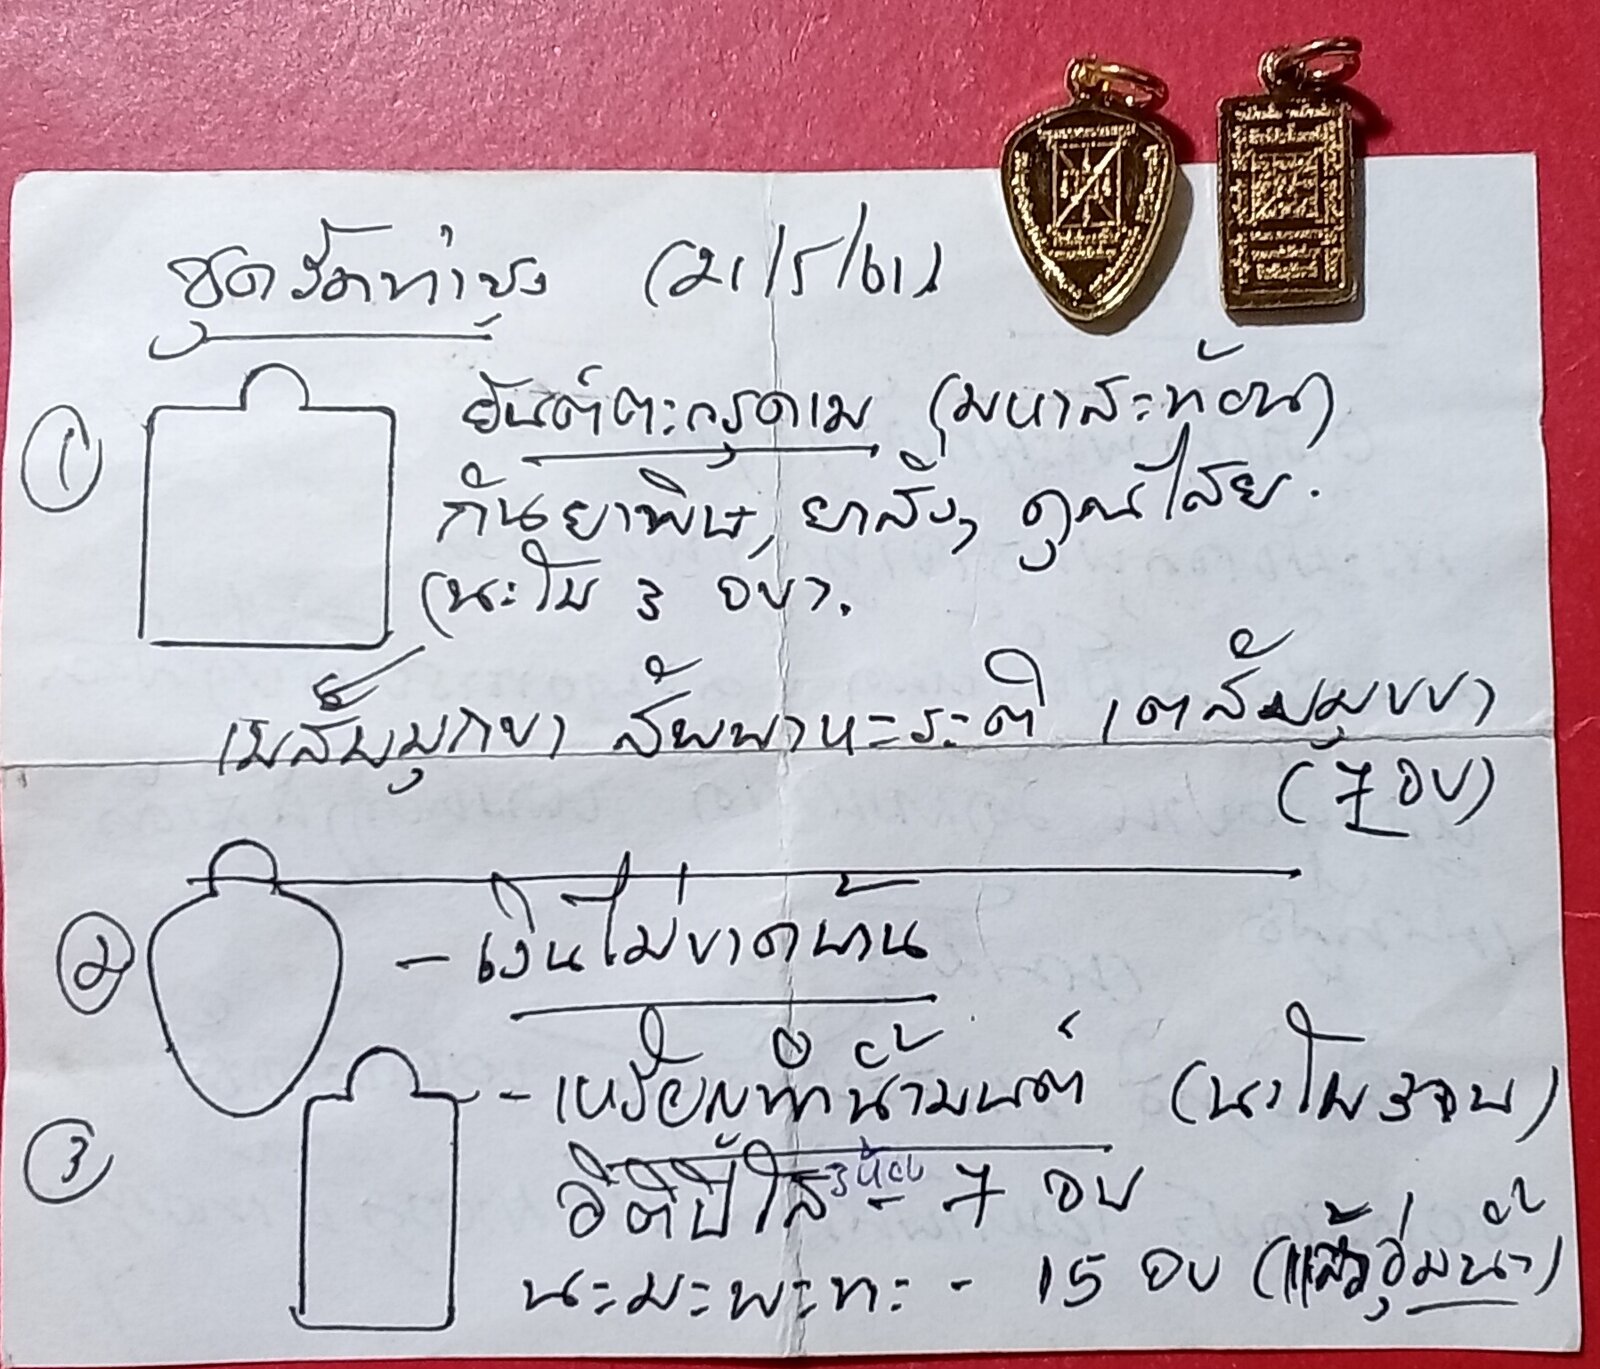 ชุดวัดท่าซุง (21/5/61)
① ยันต์ตะกรุดเม (มหาสะท้อน)
กันยาพิษ, ยาสั่ง, คุณไสย.
(นะโม 3 จบ).
เมสัมมุกขา สัพพาหะระติ เตสัมมุขขา
(7 จบ)
② - เงินไม่ขาดบ้าน
③ - เหรียญทำน้ำมนต์ (นะโม 3 จบ)
อิติปิโส 3 ห้อง - 7 จบ
นะมะพะทะ - 15 จบ (แล้วจุ่มน้ำ)